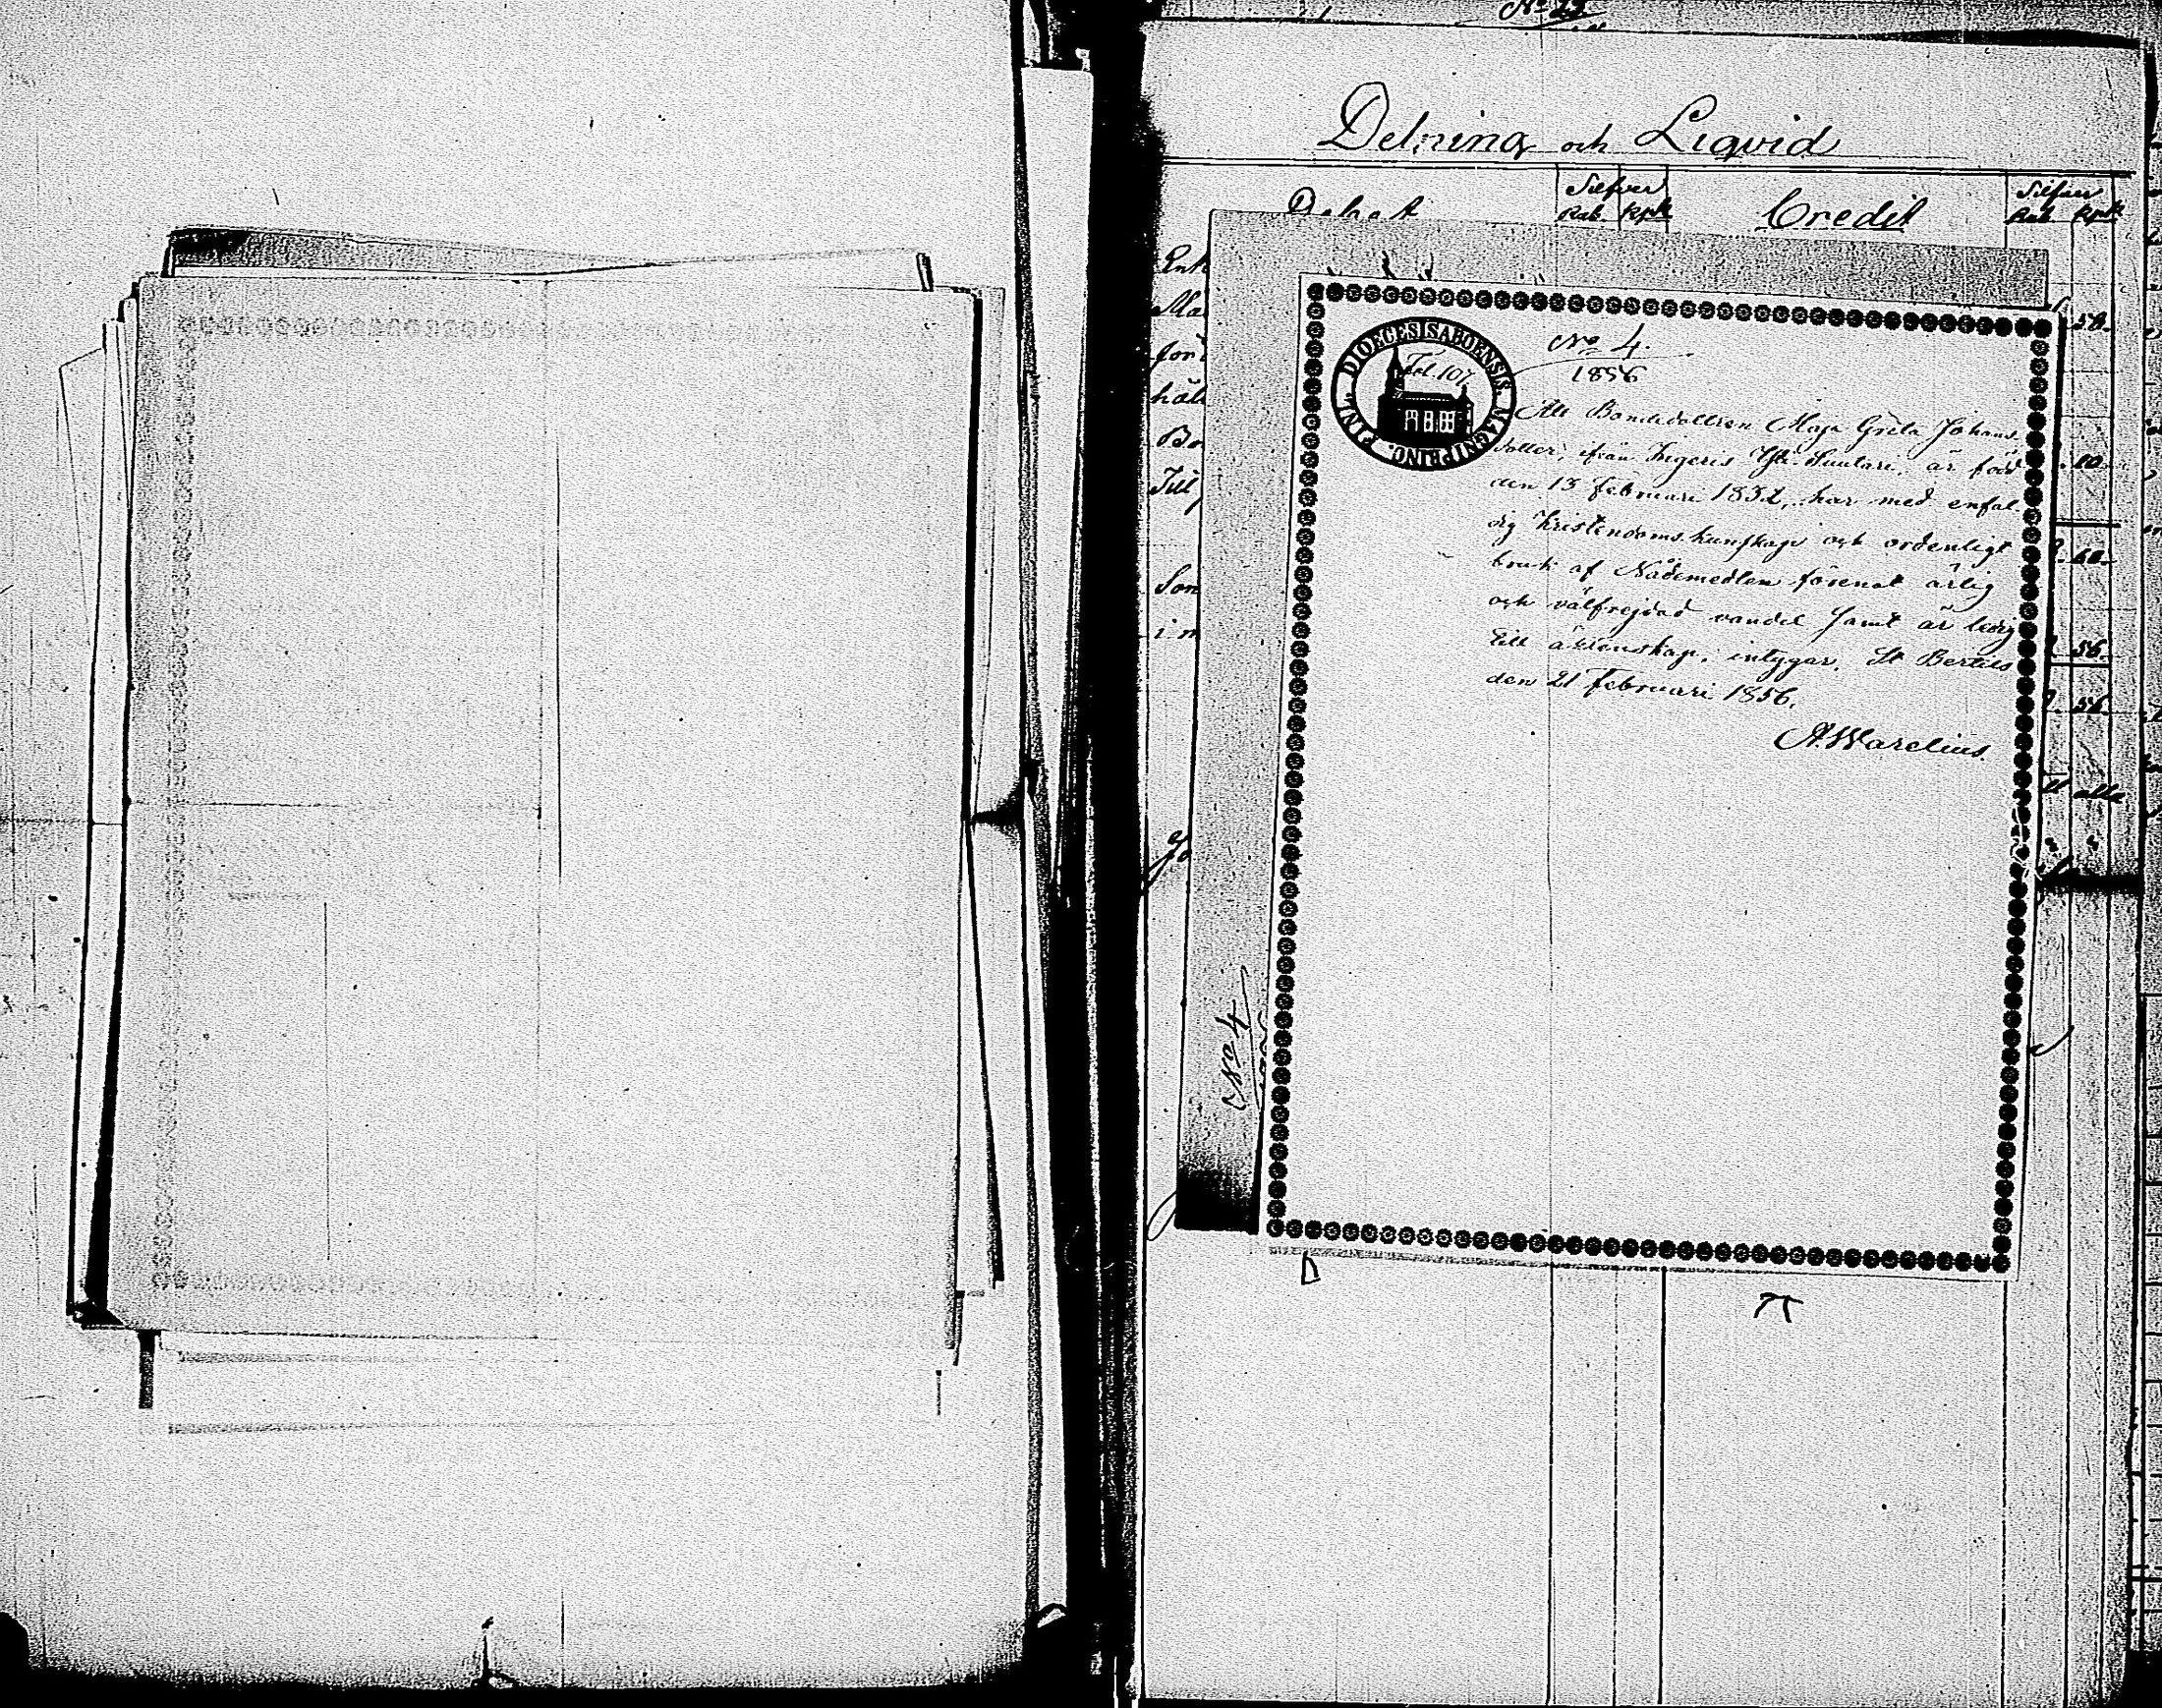 No 23
Delning och Liqvid
Debet Silfver Rub. Kpk Credit Silfver Rub. Kpk
DIOECESIS ABOENSIS. MAGNI PRINC. FINL.
Fol. 107
No 4.
1856
Att Bondedottren Maja Greta Johans
dotter, ifrån Ingeris Yli Huutari, är född
den 13 Februari 1832, har med enfal
dig Kristendoms kunskap och ordenligt
bruk af Nådemedlen förenat ärlig
och välfrejdad vandel samt är ledig
till äktenskap, intygar, St Bertils
den 21 Februari 1856.
A. Warelius.
No 4